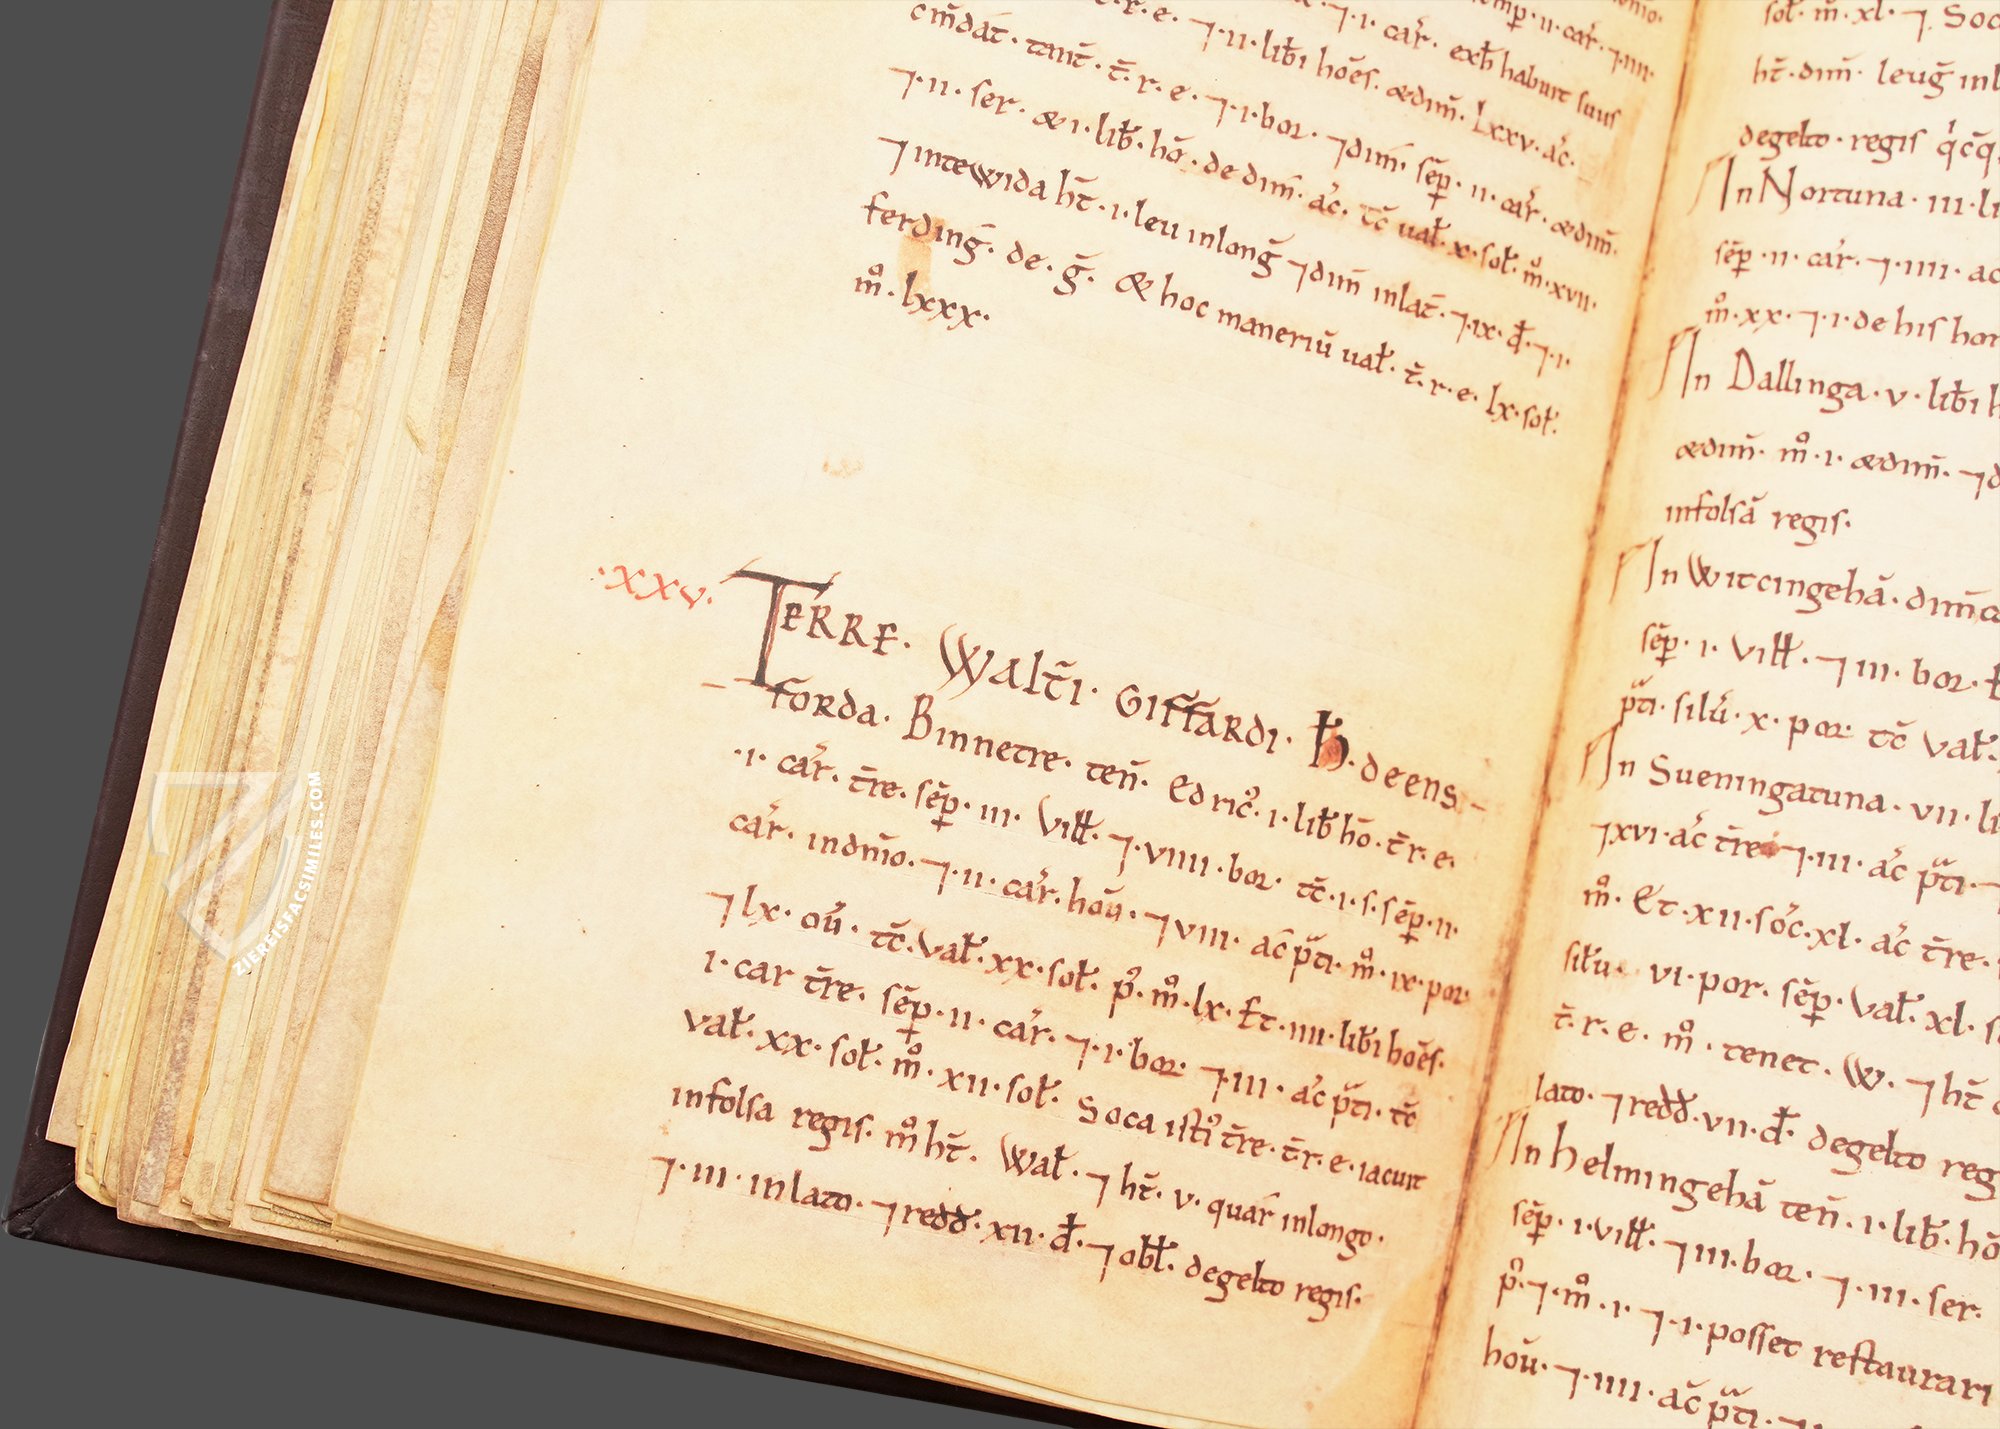 sēp · ii · car̄ · ⁊ · iiii ·
· t̄ · r · e · ⁊ · i · car̄ · exƀ habuit suus
cm̄dat̄ · tant̄ · t̄ · r · e · ⁊ · ii · liƀi hoēs · ædim̄ · Lxxv · ac̄ ·
⁊ · ii · ser · & · i · liƀ · hō · de dim̄ · ac̄ · ⁊ · i · bor · ⁊ dim̄ · sēp · ii · car̄ · ædim̄ ·
⁊ intewida ht̄ · i · leu inlonḡ ⁊ dim̄ inlat̄ · ⁊ · ix · đ · ⁊ · i ·
ferdinḡ · de · ḡ · & hoc maneriū ual̵ · t̄ · r · e · lx · sol̵ ·
m̊ · lxxx ·
· xxv · TERRE · Walt̄i · GIFFARDI · H̵ · deens–
forda · Binnetre · ten̄ · Edric᷒ · i · liƀ hō · t̄ r · e ·
· i · car̄ · t̄re · sēp · iii · Vil̵l̵ · ⁊ · viiii · bor · tc̄ · i · s · sēp · ii ·
car̄ · indn̄io · ⁊ · ii · car̄ · hoū · ⁊ viii · ac̄ p̄ti · m̊ · ix · por ·
⁊ lx · oū · tc̄ · val̵ · xx · sol̵ · p᷒ · m̊ · lx · Et · iiii · liƀi hoēs ·
i · car t̄re · sēp · ii · car̄ · ⁊ · i · bor · ⁊ · iii · ac̄ p̄ti · tc̄
val̵ · xx · sol̵ · m̊ · xii · sol̵ · Soca isti᷒ t̄re · t̄ r · e · iacuit
infolsa regis · m̊ ht̄ · Wal̵ · ⁊ ht̄ · v · quar̄ inlongo ·
⁊ · iii · inlato · ⁊ redđ · xii · đ · ⁊ obl̵l̵ · degelto regis ·
sol̵ · m̊ · xl · ⁊ · Soc
ht̄ · dim̄ · leuḡ inl
degelto · regis
In Nortuna · iii · li
sēp · ii · car̄ · ⁊ · iiii · ac
m̊ · xx · ⁊ · i · de his hom
In Dallinga · v · liƀi h
ædim̄ · m̊ · i · ædim̄ · ⁊
infolsā regis ·
In Witcingehā · dim̄
sēp · i · Vil̵l̵ · ⁊ iii · bor ·
p̄ti · silū · x · por tc̄ val̵ ·
In Sueningatuna · vii · li
⁊ xvi · ac̄ t̄re · ⁊ · iii · ac̄ p̄ti ·
m̊ · Et · xii · soc̄ · xl · ac̄ t̄re ·
sil̵u · vi · por · sēp · val̵ · xl ·
t̄ · r · e · m̊ · tenet · W · ⁊ ht̄
lato · ⁊ redđ · vii · đ · degelto reg
In helmingehā ten̄ · i · liƀ · hō
sēp · i · vil̵l̵ · ⁊ iii · bor · ⁊ · iii · ser ·
p᷒ · ⁊ · m̊ · i · ⁊ · i · posset restaurari
hoū · ⁊ · iiii · ac̄ p̄ti · ⁊
ZIEREISFACSIMILES.COM